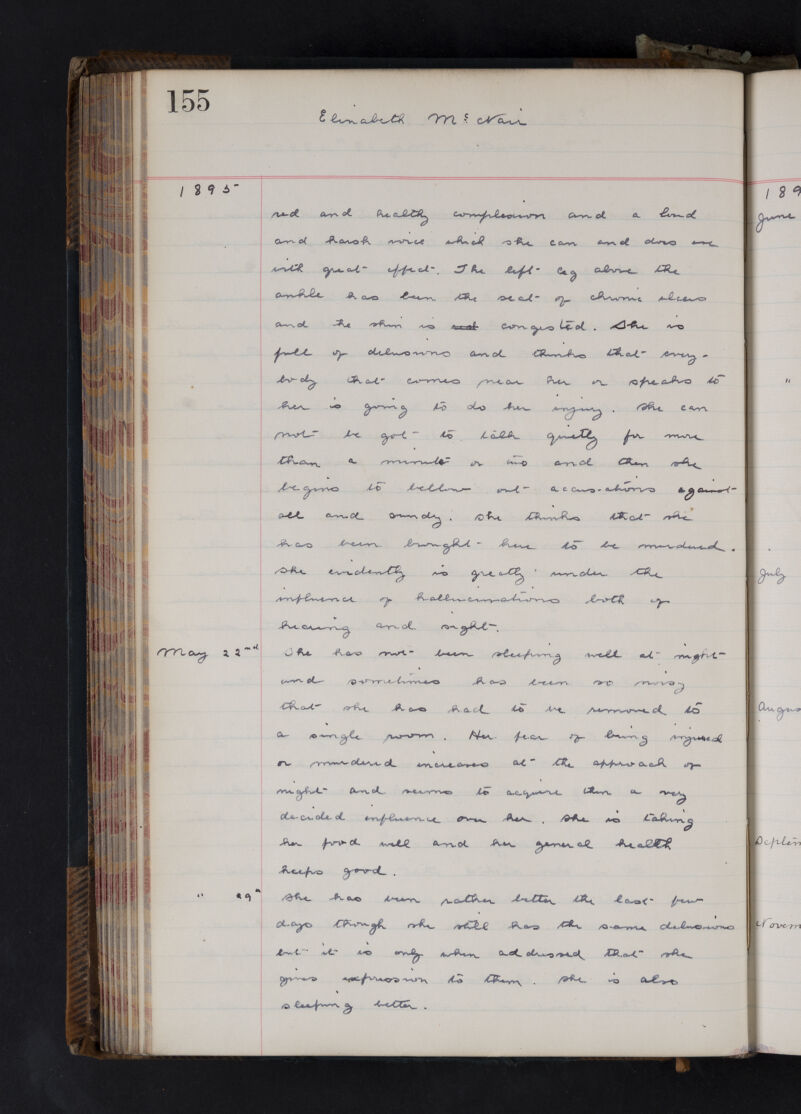 155
Elizabeth McNair
1895
red and healthy complexion and a loud
and harsh voice which she can and does use
with great effect. The left leg above the
ankle has been the seat of chronic ulcers
and the skin is congested. She is
full of delusions and thinks that every-
body that comes near her or speaks to
her is going to do her injury. She can
not be got to talk quietly for more
than a minute or two and then she
begins to bellow out accusations against
all and sundry. She thinks that she
has been brought here to be murdered.
She evidently is greatly under the
influence of hallucinations both of
hearing and sight.
May 22nd She has not been sleeping well at night
and sometimes has been so noisy
that she has had to be removed to
a single room. Her fear of being injured
or murdered increases at the approach of
night and seems to acquire then a very
decided influence over her. She is taking
her food well and her general health
keeps good.
" 29th She has been rather better the last few
days though she still has the same delusions
but it is only when addressed that she
gives expression to them. She is also
sleeping better.
189
June
"
July
Augus
Septem
Novem